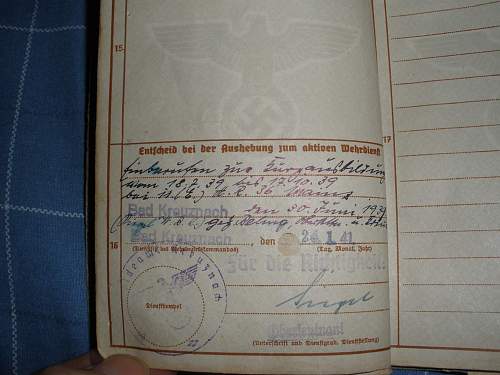 15.
Entscheid bei der Aushebung zum aktiven Wehrdienst
Einberufen zur Kurzausbildung
vom 18.7.39 bis 17.10.39
bei 36 Mainz
Bad Kreuznach, den 30. Juni 1939
gez.
16
Bad Kreuznach, den 24. 1. 41
(Tag, Monat, Jahr)
Für die Richtigkeit:
Dienststempel
Siegel
Oberleutnant
(Unterschrift und Dienstgrad, Dienststellung)
17